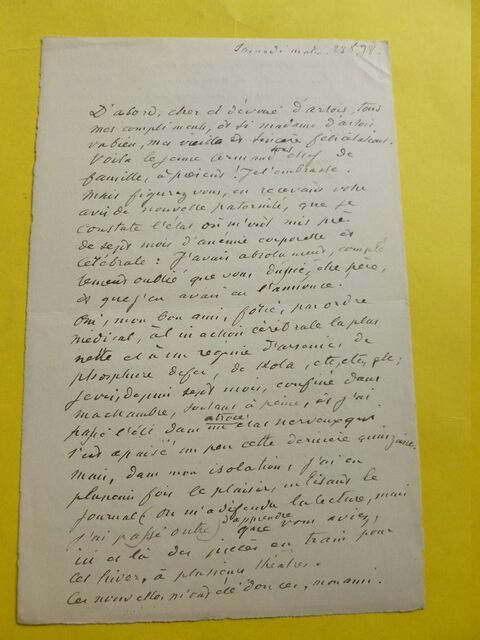 Samedi matin
D'abord, cher et dévoué d'artois, tous
mes compliments, et si madame d'artois
va bien, ma vieille et sincère félicitation.
Voilà le jeune armand chef de
famille, à présent! Je l'embrasse.
mais figurez vous, en recevant votre
avis de nouvelle paternité, que je
constate l'état où m'ont mis près
de sept mois d'anémie corporelle et
cérébrale: j'avais absolument, complè
tement oublié que vous dussiez être père,
et que j'en avais eu l'annonce.
Oui, mon bon ami, forcé, par ordre
médical, à l'inaction cérébrale la plus
nette et à un régime d'arsenic, de
phosphure de fer, de kola, etc, etc, etc;
je vis, depuis sept mois, confiné dans
ma chambre, sortant à peine, et j'ai
passé l'été dans un atroce état nerveux qui
s'est apaisé un peu cette dernière quinzaine.
mais, dans mon isolation, j'ai eu
plusieurs fois le plaisir, en lisant le
journal (on m'a défendu la lecture, mais
j'ai passé outre) d'apprendre que vous aviez,
ici et là des pièces en train pour
cet hiver, à plusieurs théâtres.
Ces nouvelles m'ont été douces, mon ami.